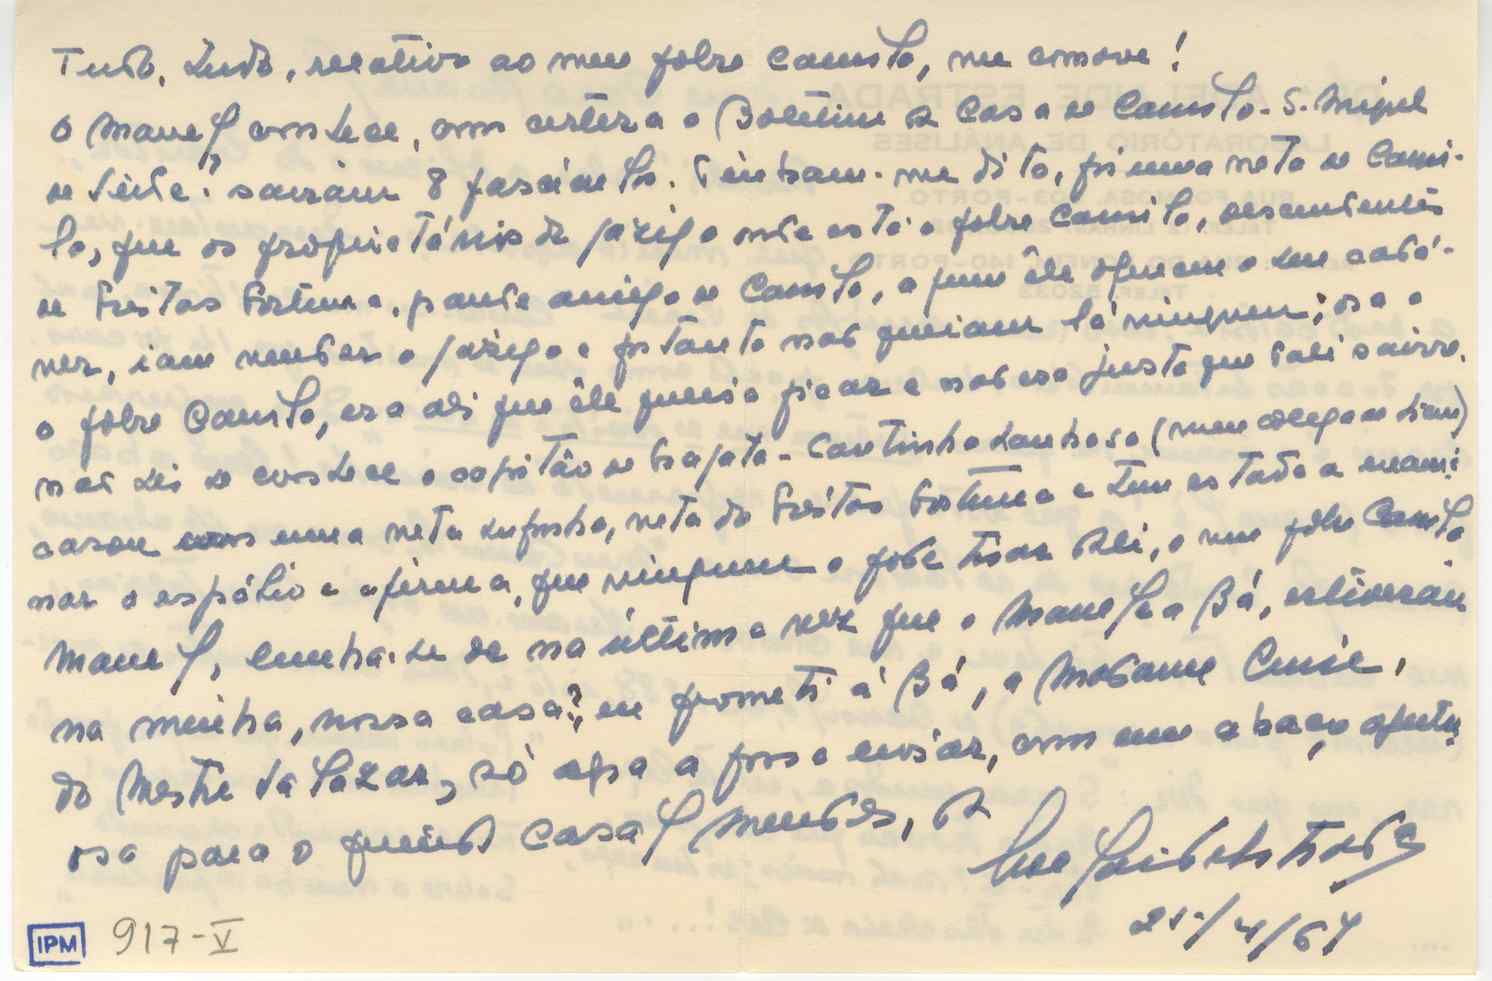 Tudo, tudo, relativo ao meu pobre Camilo, me comove!
O Manel conhece, com certeza o Boletim da Casa de Camilo - S. Miguel
de Seide? sairam 8 fascículos. Tinham-me dito, foi uma neta de Cami-
lo, que os proprietários do jazigo onde está o pobre Camilo, descendentes
de Freitas Fortuna, grande amigo de Camilo, a quem êle ofereceu o seu cadá-
ver, iam vender o jazigo e portanto não queriam lá ninguem; ora o
o pobre Camilo, era ali que êle queria ficar e não era justo que dali saísse.
não sei se conhece o capitão de fragata - Coutinho Lanhoso (meu colega de liceu)
casou com uma neta, suponho, neta do Freitas Fortuna e tem estado a exami-
nar o espólio e afirma, que ninguem o pode tirar dali, o meu pobre Camilo
Manel, lembra-se de na última vez que o Manel e a Bá, estiveram
na minha, nossa casa? eu prometi á Bá, a Madame Curie,
do Mestre Salazar, só agora a posso enviar, com um abraço afectu-
oso para o querido casal Mendes, da
21/4/67
IPM 917-V